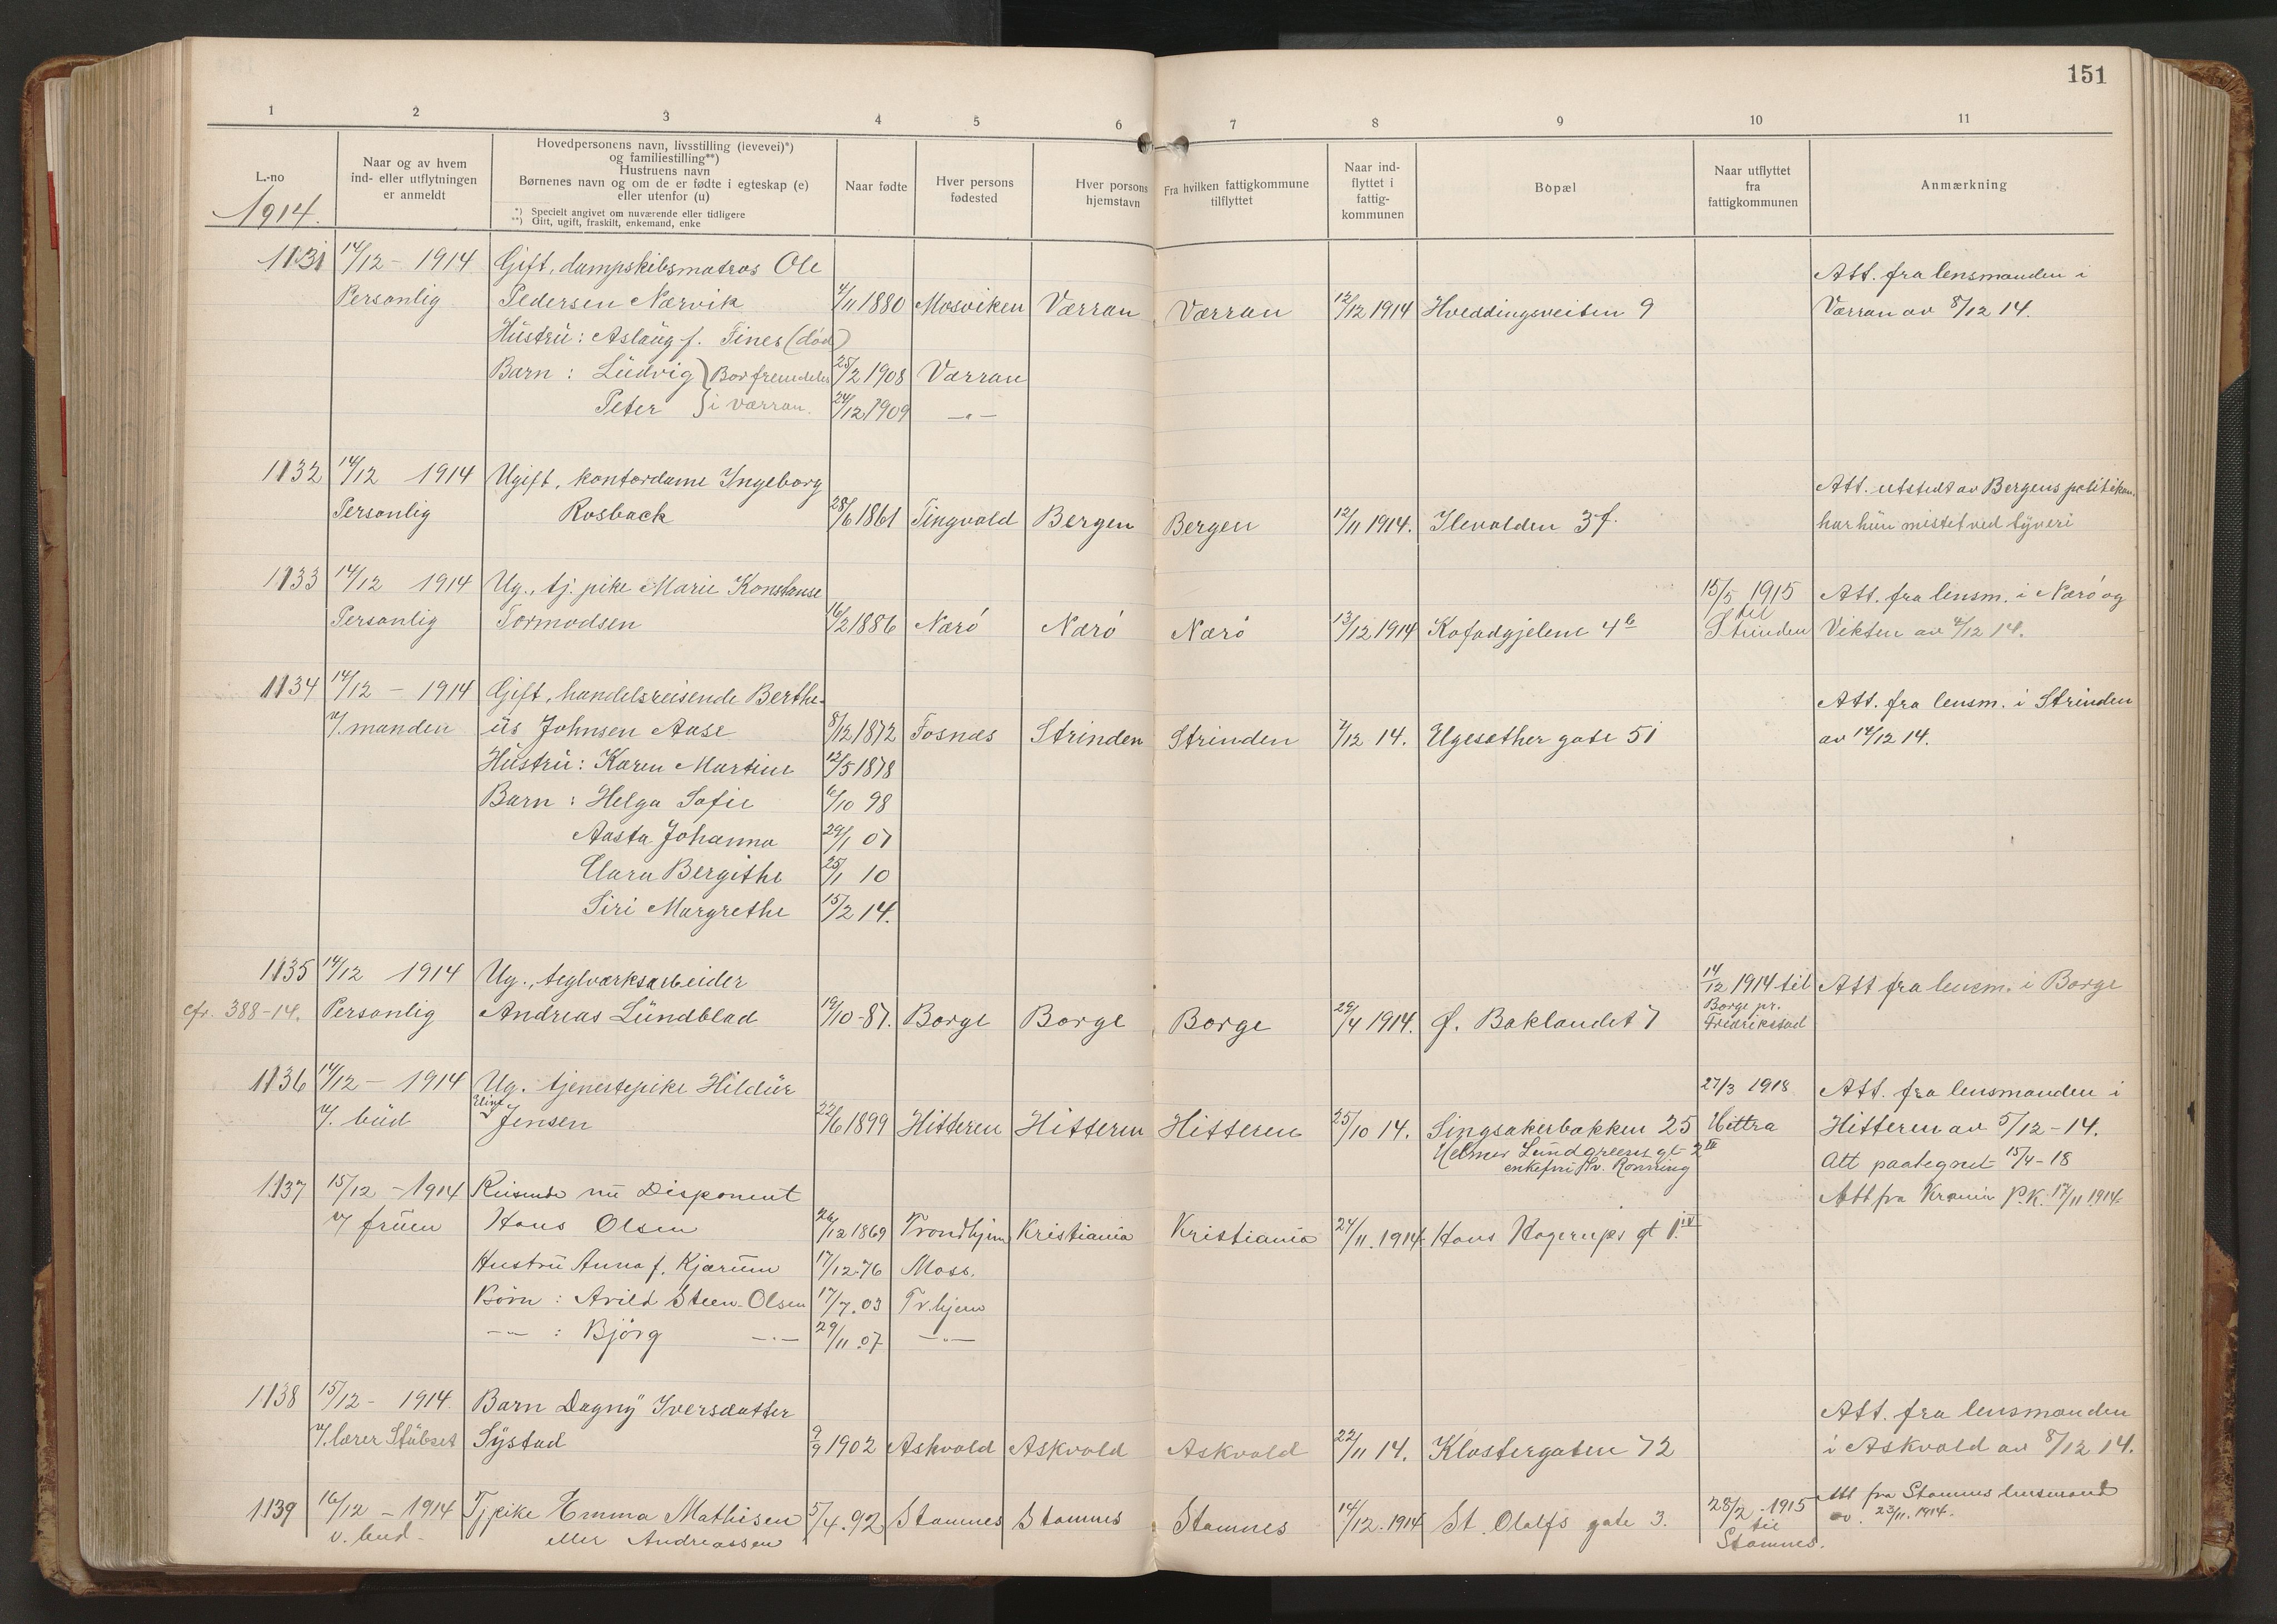 151
1 2 3 4 5 6 7 8 9 10 11
L.-no
1914.
Naar og av hvem
ind- eller utflytningen
er anmeldt
Hovedpersonens navn, livsstilling (levevei)*)
og familiestilling**)
Hustruens navn
Børnenes navn og om de er fødte i egteskap (e)
eller utenfor (u)
*) Specielt angivet om nuværende eller tidligere
**) Gift, ugift, fraskilt, enkemand, enke
Naar fødte
Hver persons
fødested
Hver porsons
hjemstavn
Fra hvilken fattigkommune
tilflyttet
Naar ind-
flyttet i
fattig-
kommunen
Bopæl
Naar utflyttet
fra
fattigkommunen
Anmærkning
1131 14/12 - 1914 Gift, dampskibsmatros Ole Att. fra lensmanden i
Personlig Pedersen Nærvik 4/11 1880 Mosviken Værran Værran 12/12 1914 Hveddingsveiten 9 Værran av 8/12 14.
Hustru: Aslaug f. Tines (död)
Barn: Ludvig } Bor fremdeles 25/2 1908 Værran
Peter } i Værran. 24/12 1909 -"-
1132 14/12 1914 Ugift, kontordame Ingeborg Att. utstedt av Bergens politikam.
Personlig Rosback 28/6 1861 Tingvold Bergen Bergen 12/11 1914. Ilevolden 3 f. har hun mistet ved tyveri
1133 14/12 1914 Ug., tj. pike Marie Konstanse 15/5 1915 Att. fra lensm. i Nærö og
Personlig Tormodsen 16/2 1886 Nærö Nærö Nærö 13/12 1914 4b til Strinden Vikten av 4/12 14.
1134 14/12 - 1914 Gift, handelsreisende Berthe- Att. fra lensm. i Strinden
v/ manden us Johnsen Aase 8/12 1872 Fosnæs Strinden Strinden 7/12 14. Ugesæther gate 51 av 14/12 14.
Hustru: Karen Martine 12/5 1878
Barn: Helga Sofie 6/10 98
Aasta Johanna 29/1 07
Clara Bergithe 25/1 10
Siri Margrethe 15/2 14.
1135 14/12 1914 Ug., teglværksarbeider 14/12 1914 til Att fra lensm. i Borge
cfr. 388-14. Personlig Andreas Lundblad 19/10-87. Borge Borge Borge 29/4 1914. Ø. Baklandet 7 Borge pr. Fredrikstad
1136 14/12 - 1914 Ug. tjenestepike Hildur 27/3 1918 Att. fra lensmanden i
v/. bud Eline Jensen 22/6 1899 Hitteren Hitteren Hitteren 25/10 14. Singsakerbakken 25 Hittra Hitteren av 5/12-14.
Helmer Lundgreens gt 2 III Att paategnet 15/4-18
enkefru Rönning
1137 15/12 - 1914 Reisende nu Disponent Att fra Krania P.K. 17/11 1914
v/ fruen Hans Olsen 26/12 1869 Trondhjem Kristiania Kristiania 24/11. 1914 Hans Hagerups gt 1. IV
Hustru Anna f. Kjærum 17/12-76 Moss.
Börn: Arild Steen-Olsen 17/7. 03 Tr.hjem
-"- : Björg -"- 29/11. 07 -"-
1138 15/12 - 1914. Barn Dagny Iversdatter Att. fra lensmanden
v/. lærer Stubset Systad 9/9 1902 Askvold Askvold Askvold 22/11 14. Klostergaten 72 i Askvold av 8/12 14.
1139 16/12 - 1914 Tjpike Emma Mathisen 5/4. 92 Stamnes Stamnes Stamnes 14/12. 1914 St. Olafs gate 3. 28/2 1915 Att fra Stamnes lensmand
v. bud. eller Andreassen til Stamnes. av 23/11. 1914.